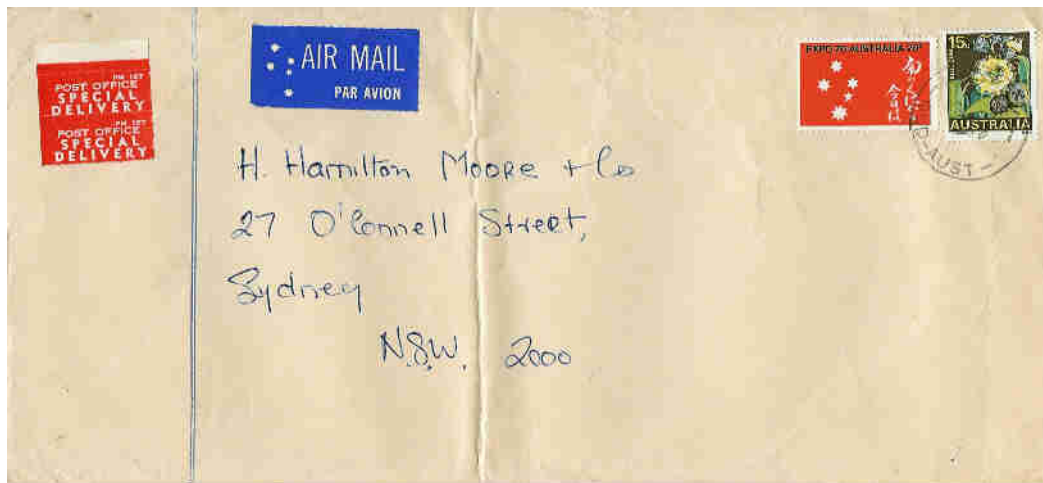 PM 157
POST OFFICE
SPECIAL
DELIVERY
PM 157
POST OFFICE
SPECIAL
DELIVERY
AIR MAIL
PAR AVION
EXPO 70 AUSTRALIA 20c
南のくに
今日は
15c
AUSTRALIA
AUST
H. Hamilton Moore + Co
27 O'Connell Street,
Sydney
N.S.W. 2000